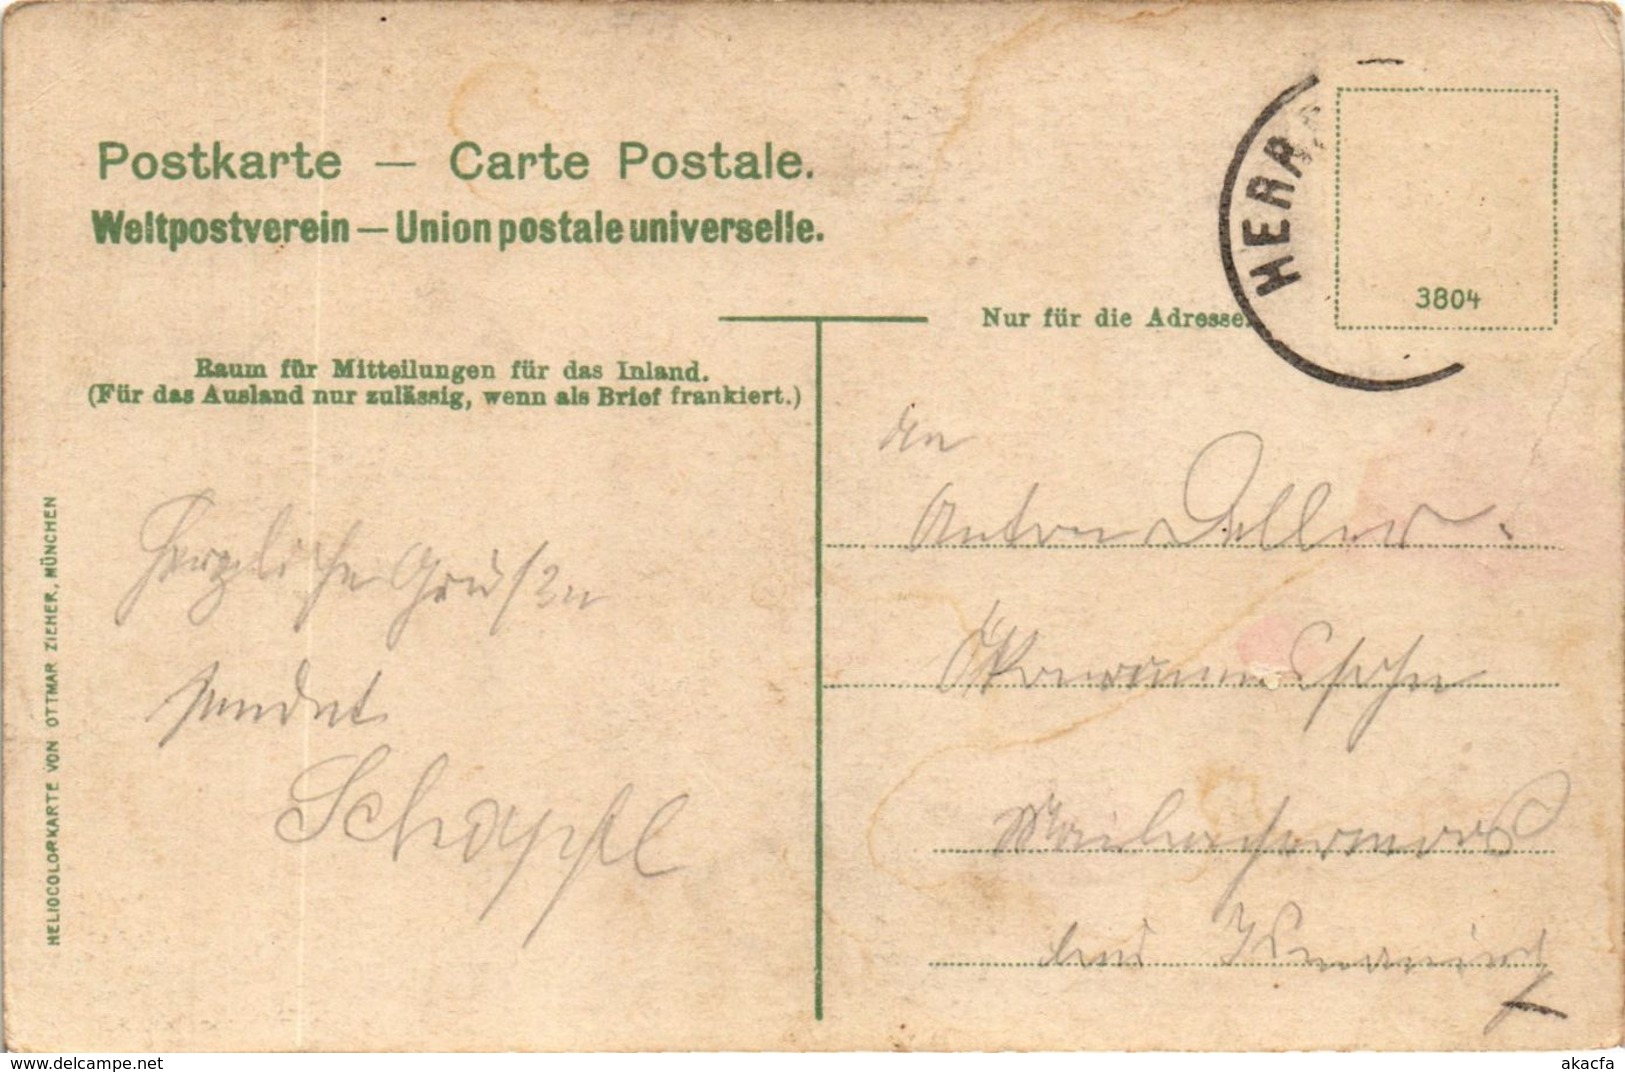 Postkarte — Carte Postale.
Weltpostverein — Union postale universelle.
HERR
3804
Nur für die Adresse.
Raum für Mitteilungen für das Inland.
(Für das Ausland nur zulässig, wenn als Brief frankiert.)
HELIOCOLORKARTE VON OTTMAR ZIEHER, MÜNCHEN
Herzliche Grüßen
sendet
Schapfl
An
Anton
Ökonomenssohn
bei Ismaning
www.delcampe.net
akacfa